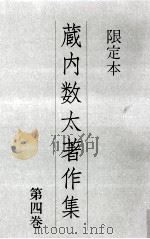 限定本
蔵内数太著作集
第四巻
mtoou.info